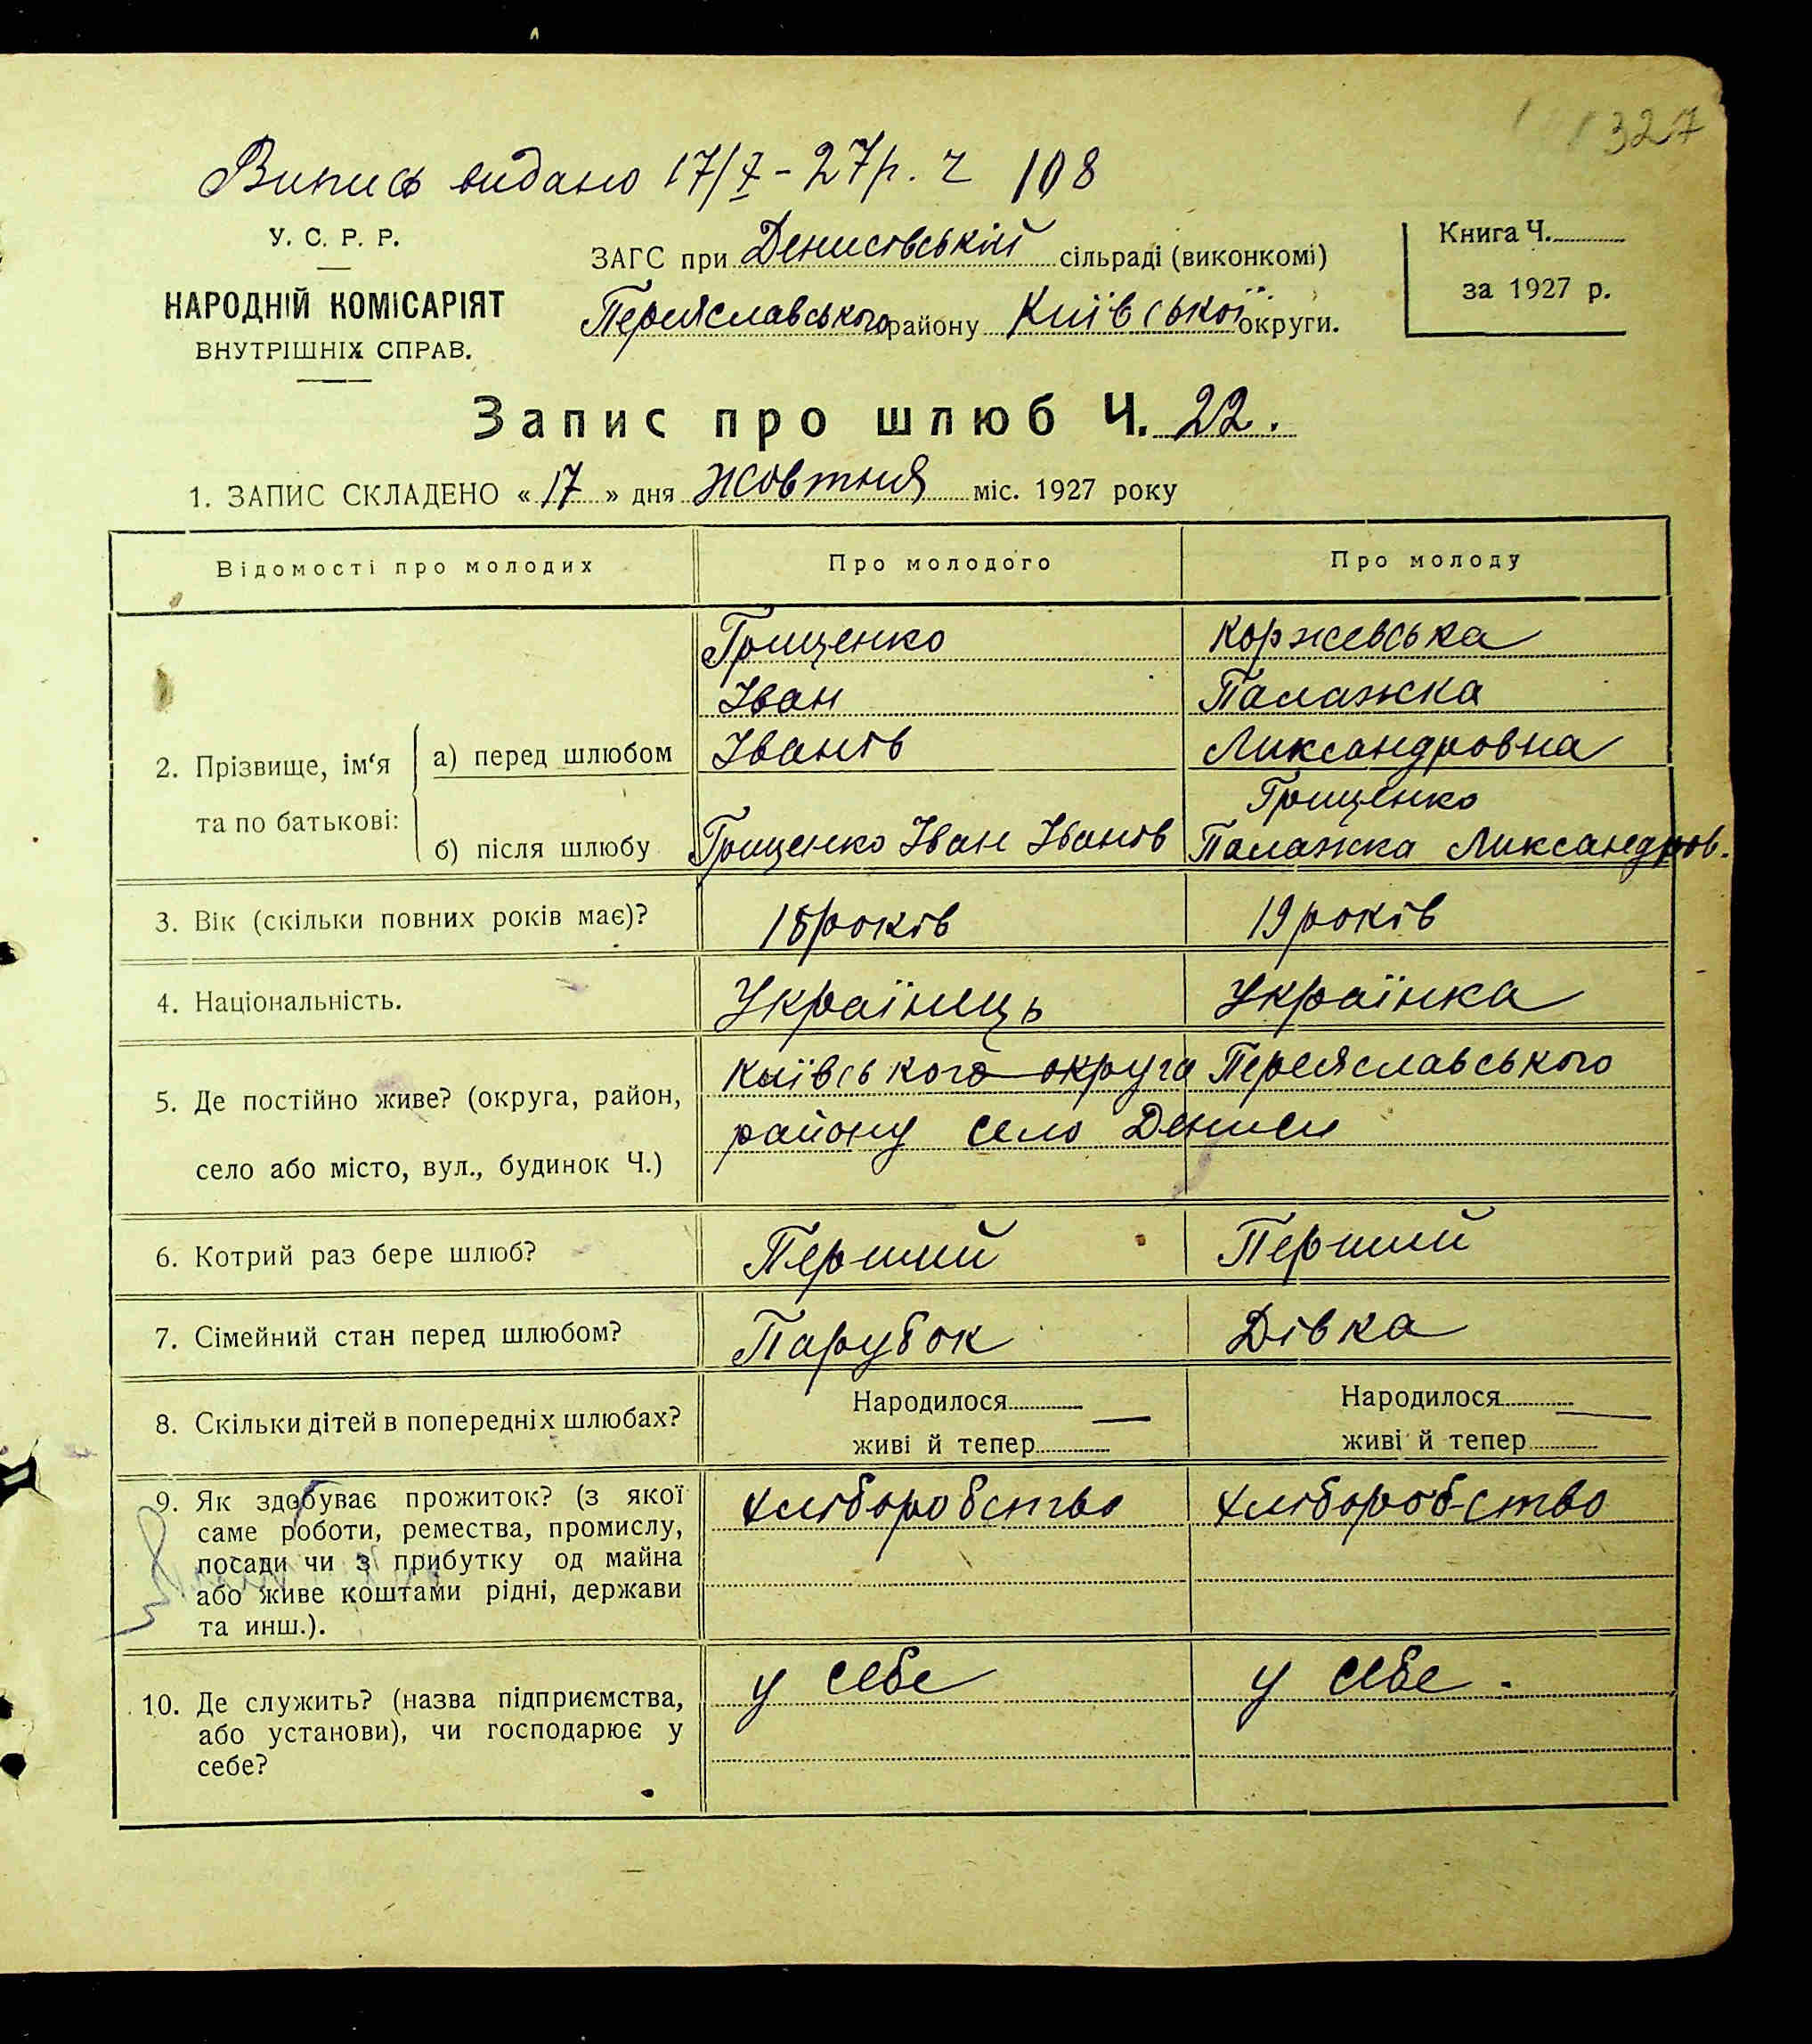 327
Випись видано 17/X - 27р. ч 108
У. С. Р. Р.
НАРОДНІЙ КОМІСАРІЯТ
ВНУТРІШНІХ СПРАВ.
ЗАГС при Денисівській сільраді (виконкомі)
Переяславського району Київської округи.
Книга Ч.
за 1927 р.
Запис про шлюб Ч. 22.
1. ЗАПИС СКЛАДЕНО « 17 » дня жовтня міс. 1927 року
Відомості про молодих
Про молодого
Про молоду
2. Прізвище, ім‘я та по батькові:
а) перед шлюбом
Грищенко
Іван
Іванів
Коржевська
Палажка
Ликсандровна
б) після шлюбу
Грищенко Іван Іванів
Грищенко
Палажка Ликсандров.
3. Вік (скільки повних років має)?
18 років
19 років
4. Національність.
Українець
Українка
5. Де постійно живе? (округа, район,
село або місто, вул., будинок Ч.)
Київського округа Переяславського
району село Дениси
6. Котрий раз бере шлюб?
Перший
Перший
7. Сімейний стан перед шлюбом?
Парубок
Дівка
8. Скільки дітей в попередніх шлюбах?
Народилося —
живі й тепер
Народилося —
живі й тепер
9. Як здобуває прожиток? (з якої
саме роботи, ремества, промислу,
посади чи з прибутку од майна
або живе коштами рідні, держави
та инш.).
хліборобство
хліборобство
10. Де служить? (назва підприємства,
або установи), чи господарює у
себе?
у себе
у себе.